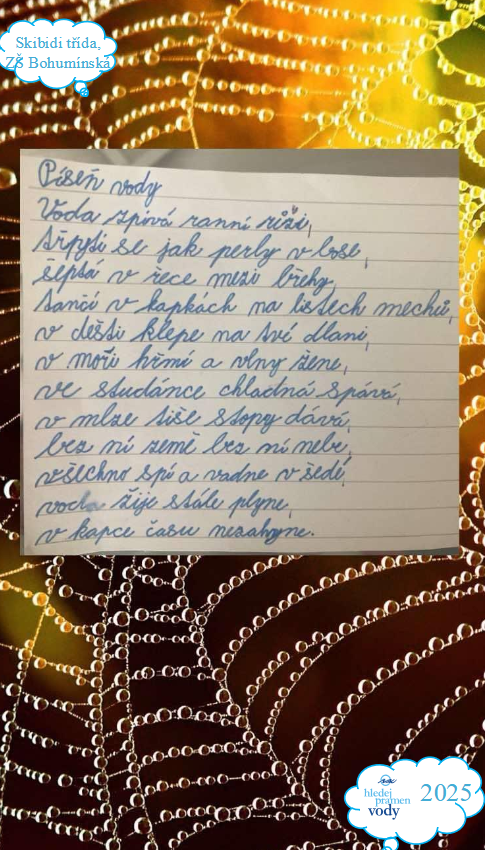 Skibidi třída,
ZŠ Bohumínská
Píseň vody
Voda zpívá ranní růži,
třpytí se jak perly v lose,
šeptá v řece mezi břehy,
tančí v kapkách na listech mechů,
v dešti klepe na tvé dlani,
v moři hřmí a vlny žene,
ve studánce chladná spává,
v mlze tiše stopy dává,
bez ní země bez ní nebe,
vzšechno spí a vadne v šedi,
voda žije stále plyne,
v kapce času nezahyne.
hledej
pramen
vody
2025